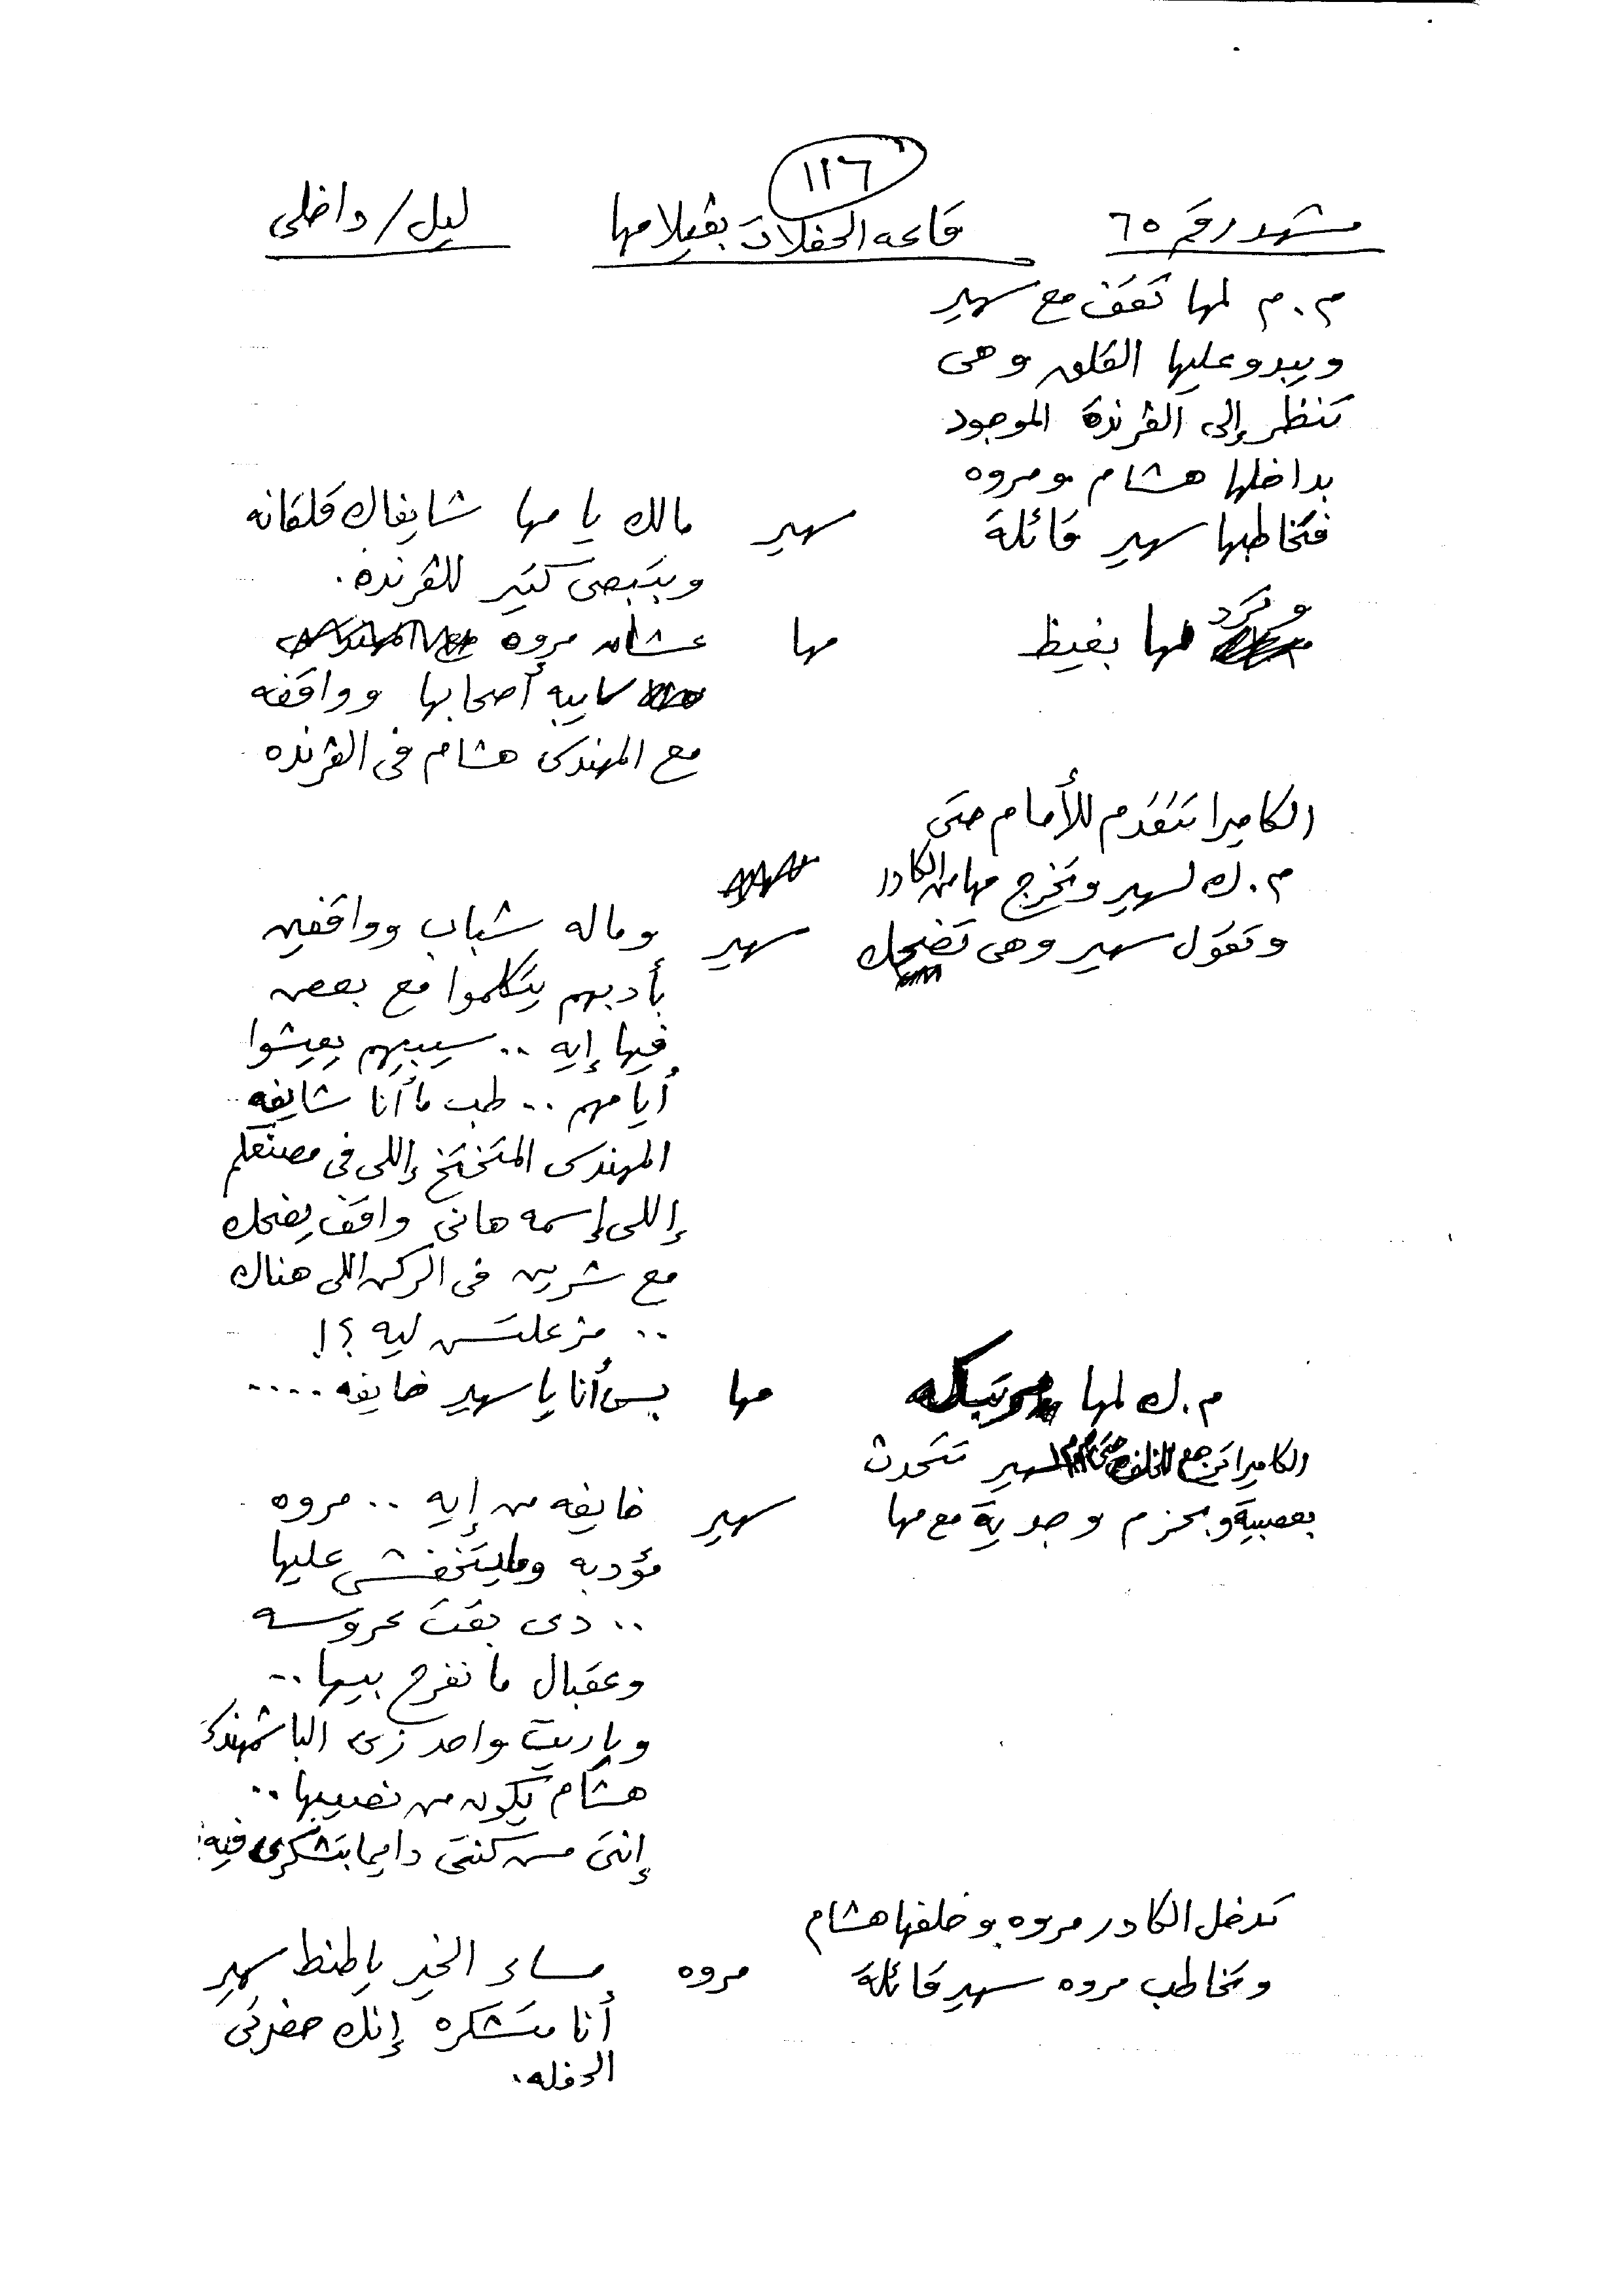 ١١٦
مشهد رقم ٦٥ قاعه الحفلات بڤيلا مها ليل/داخلى
م.م لمها تقف مع سهير
ويبدو عليها القلق وهى
تنظر إلى الڤرندة الموجود
بداخلها هشام ومروه
فتخاطبها سهير قائلة سهير مالك يا مها شايفاك قلقانه
وبتبصى كتير للڤرنده.
وترد مها بغيظ مها عشان مروه
سايبه أصحابها وواقفه
مع المهندس هشام فى الڤرنده
الكاميرا تتقدم للأمام حتى
م.ك لسهير وتخرج مها من الكادر
وتقول سهير وهى تضحك سهير وماله شباب وواقفين
بأدبهم يتكلموا مع بعض
فيها إيه .. سيبيهم يعيشوا
أيامهم .. طب ما أنا شايفه
المهندس المتختخ إللى فى مصنعكم
إللى إسمه هانى واقف يضحك
مع شرين فى الركن اللى هناك
.. مزعلتش ليه ؟!
م.ك لمها مرتبكه مها بس أنا يا سهير خايفه ....
الكاميرا ترجع للخلف حتى م.م لسهير تتحدث
بعصبية وبحزم وجدية مع مها سهير خايفه من إيه .. مروه
مؤدبه وما يتخفش عليها
.. دى بقت عروسه
وعقبال ما نفرح بيها ..
وياريت واحد زى الباشمهندس
هشام يكون من نصيبها ..
إنتى مش كنتى دايما بتشكرى فيه
تدخل الكادر مروه وخلفها هشام
وتخاطب مروه سهير قائلة مروه مساء الخير يا طنط سهير
أنا متشكره إنك حضرتى
الحفله.